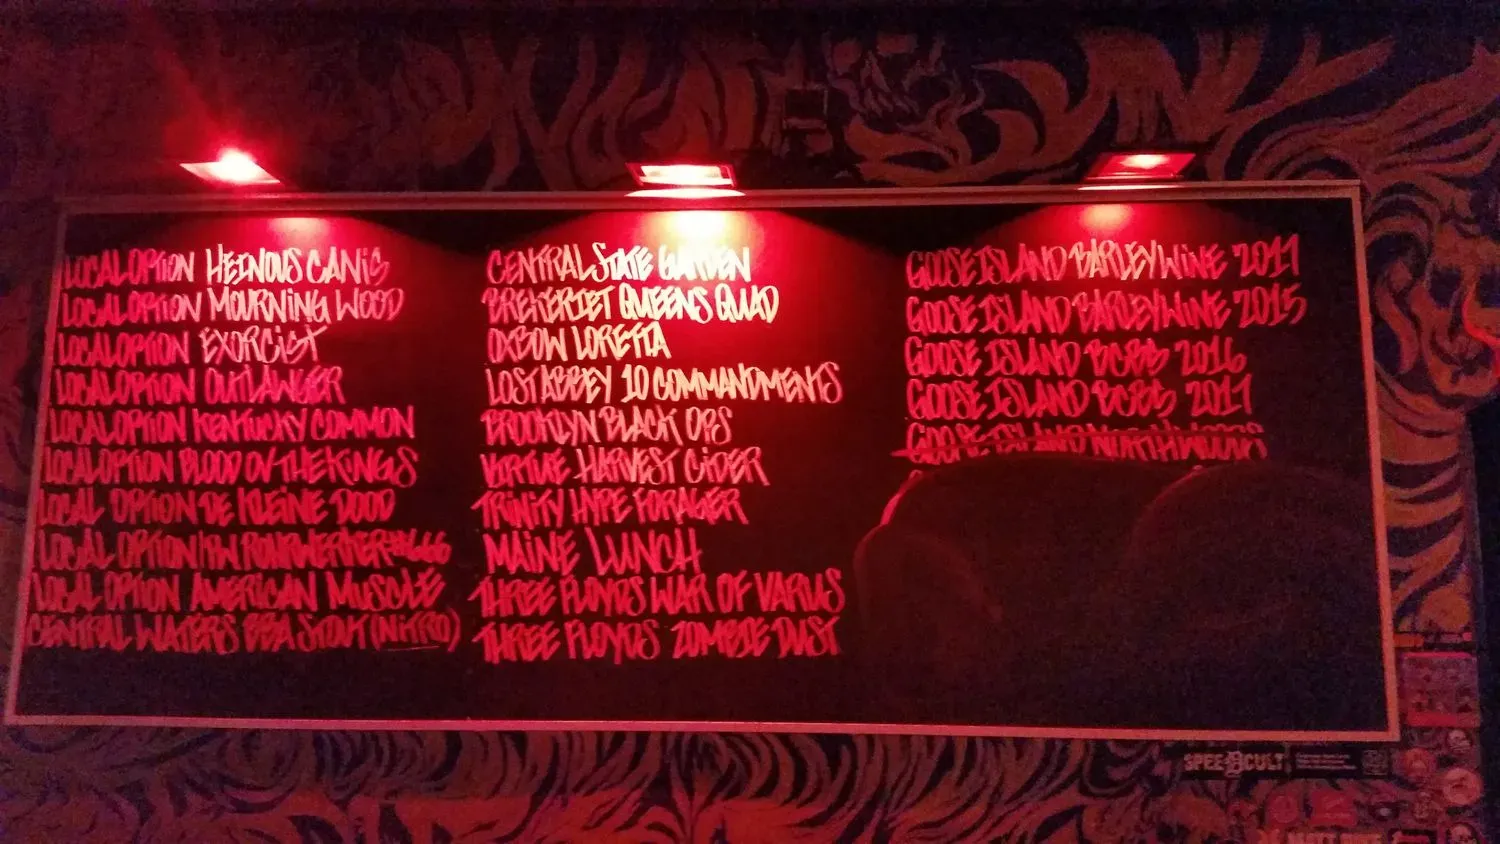 LOCAL OPTION HEINOUS CANIS
LOCAL OPTION MOURNING WOOD
LOCAL OPTION EXORCIST
LOCAL OPTION OUTLAWGER
LOCAL OPTION KENTUCKY COMMON
LOCAL OPTION BLOOD OV THE KINGS
LOCAL OPTION DE KLEINE DOOD
LOCAL OPTION #666
LOCAL OPTION AMERICAN MUSCLE
CENTRAL WATERS BBA STOUT (NITRO)
CENTRAL STATE GARDEN
BREKERIET QUEENS QUAD
OXBOW LORETTA
LOST ABBEY 10 COMMANDMENTS
BROOKLYN BLACK OPS
VIRTUE HARVEST CIDER
TRINITY HYPE FORAGER
MAINE LUNCH
THREE FLOYDS WAR OF VARUS
THREE FLOYDS ZOMBIE DUST
GOOSE ISLAND BARLEYWINE 2017
GOOSE ISLAND BARLEYWINE 2015
GOOSE ISLAND BCBS 2016
GOOSE ISLAND BCBS 2017
GOOSE ISLAND NORTHWOODS